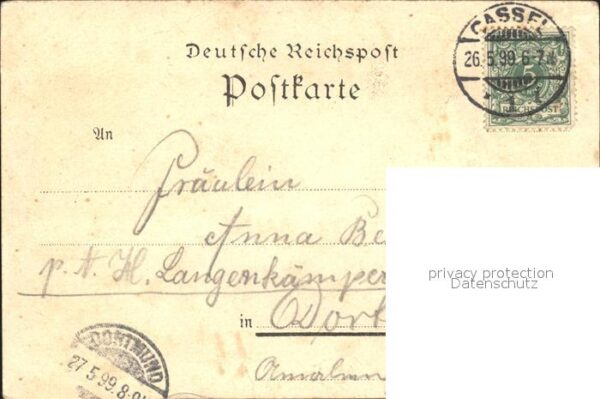 CASSEL
26.5.99. 6-7
1
REICHSPOST
Deutsche Reichspost
Postkarte
An
Fräulein
Anna Be
p. A. H. Langenkämper
in Dort
privacy protection
Datenschutz
DORTMUND
27.5.99.8-9